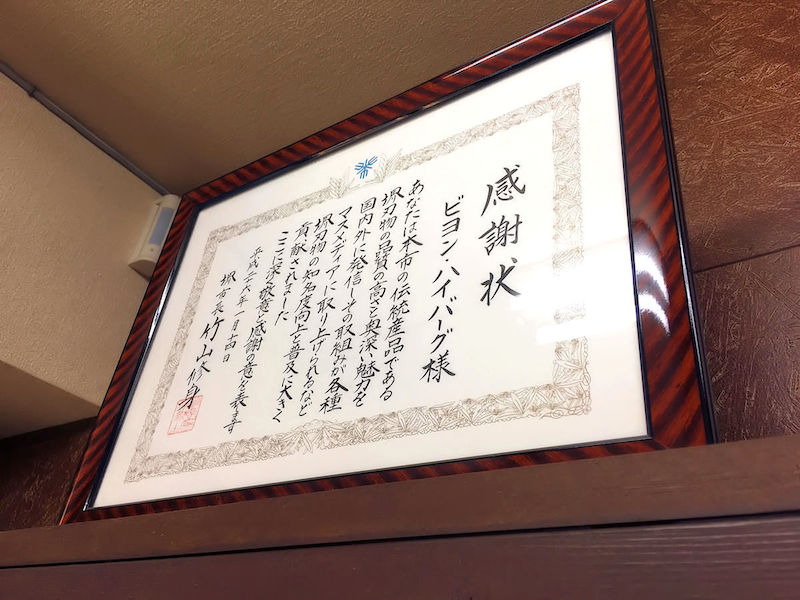 感謝状
ビヨン・ハイバーグ様
あなたは本市の伝統産品である
堺刃物の品質の高さと奥深い魅力を
国内外に発信しその取組みが各種
マスメディアに取り上げられるなど
堺刃物の知名度向上と普及に大きく
貢献されました
ここに深く敬意と感謝の意を表します
平成二十六年一月十四日
堺市長 竹山修身